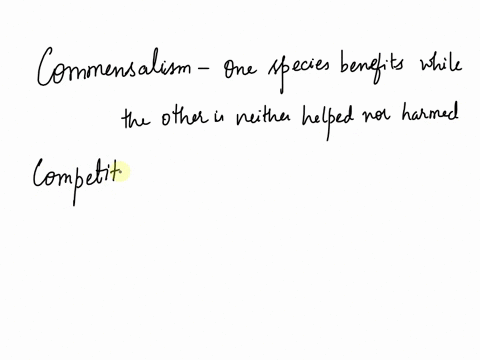 Commensalism - One species benefits while
the other is neither helped nor harmed
Competit